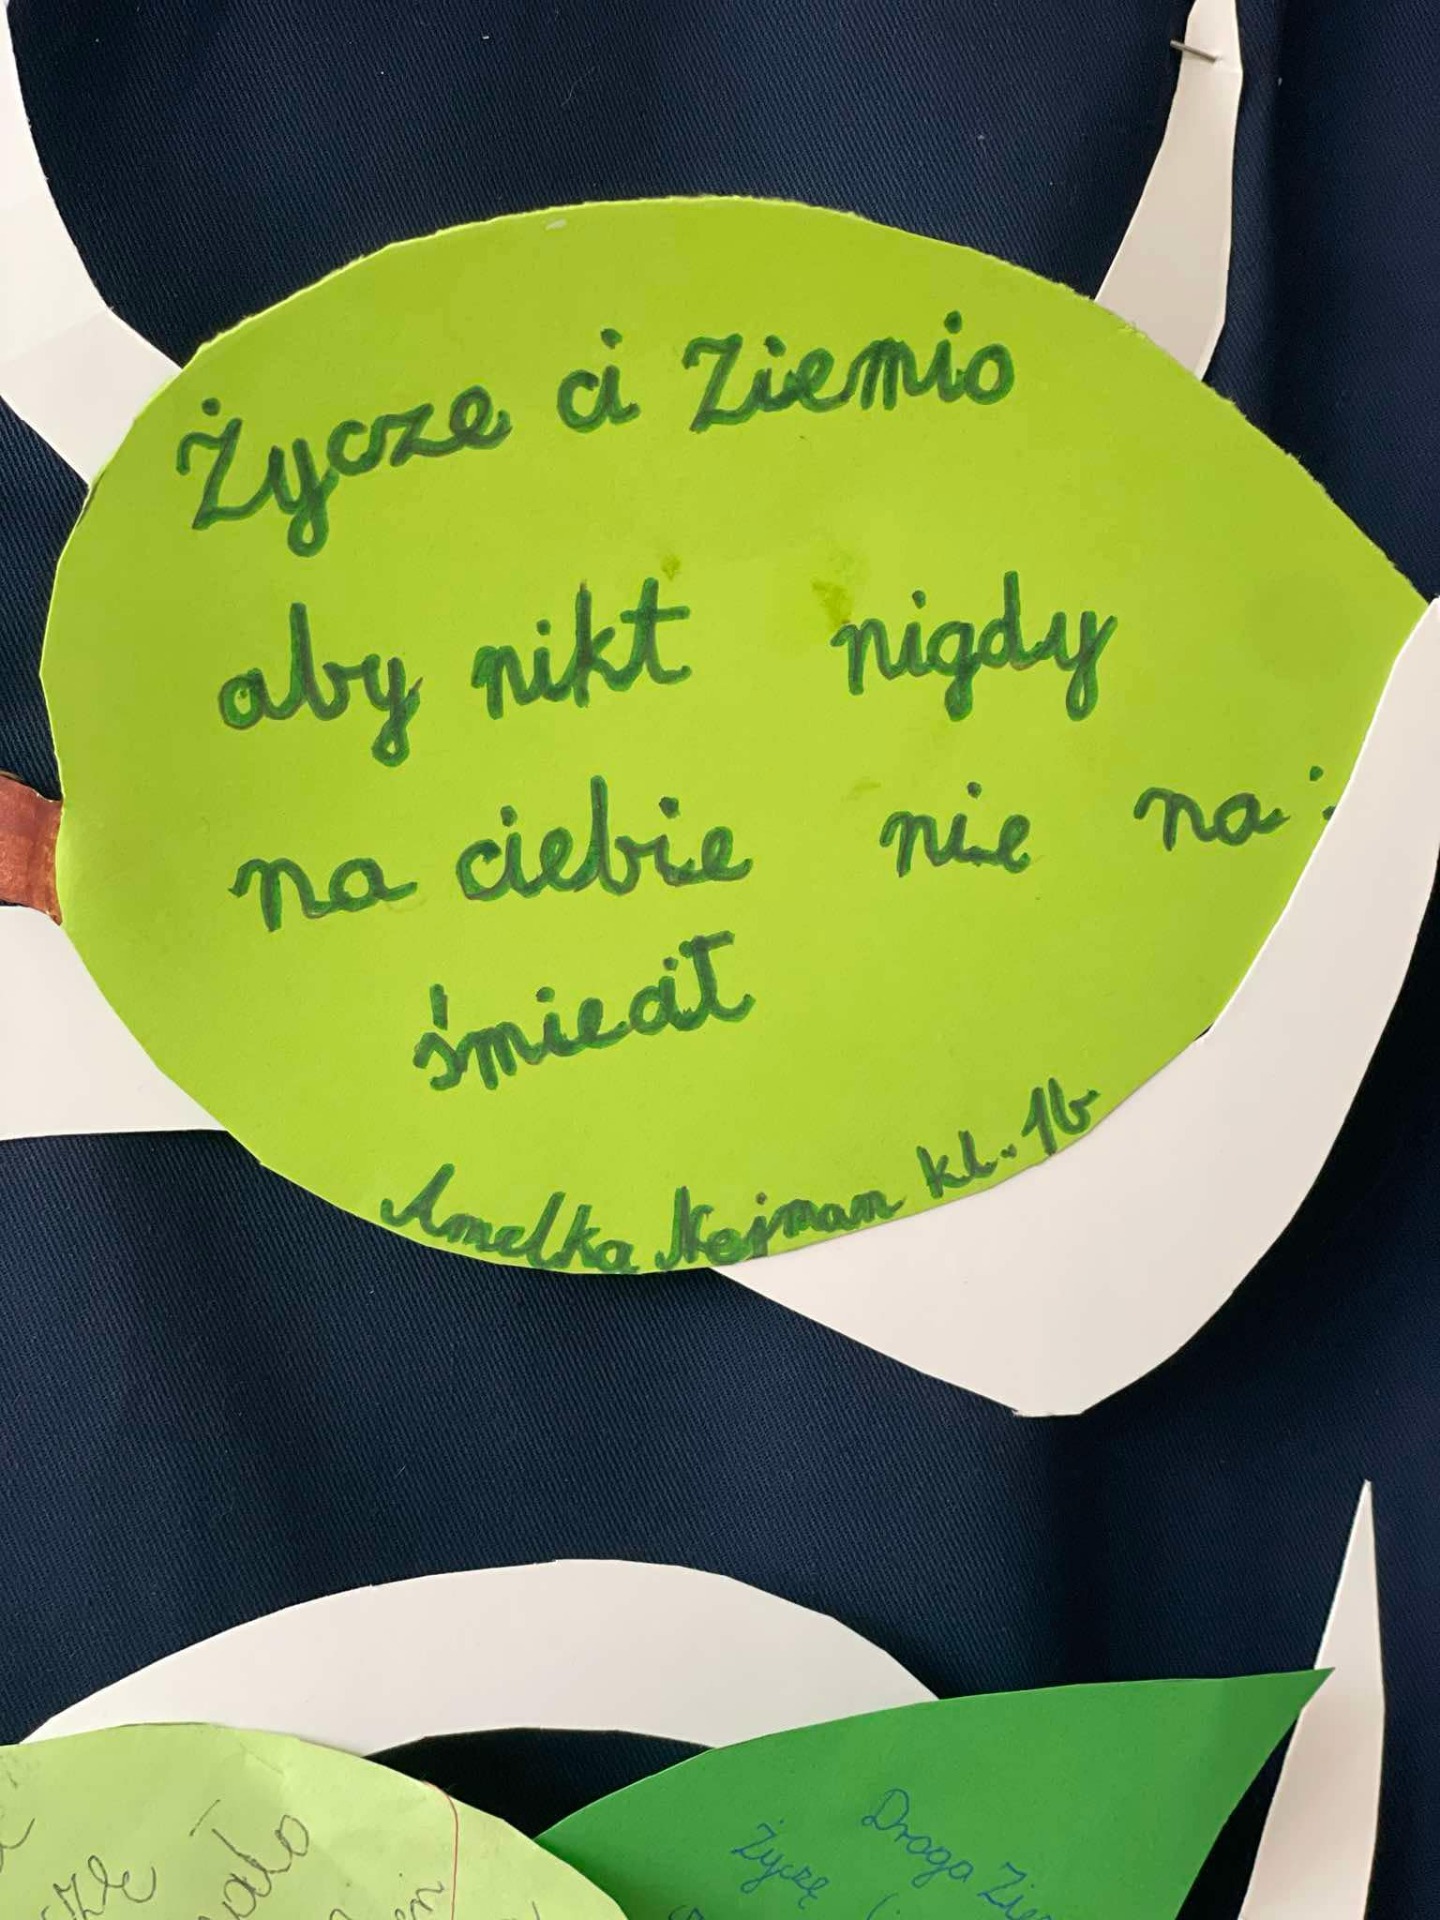 Życze ci Ziemio
aby nikt nigdy
na ciebie nie na:
śmiecił
Amelka Nejman kl. 1b
Droga
Życzę